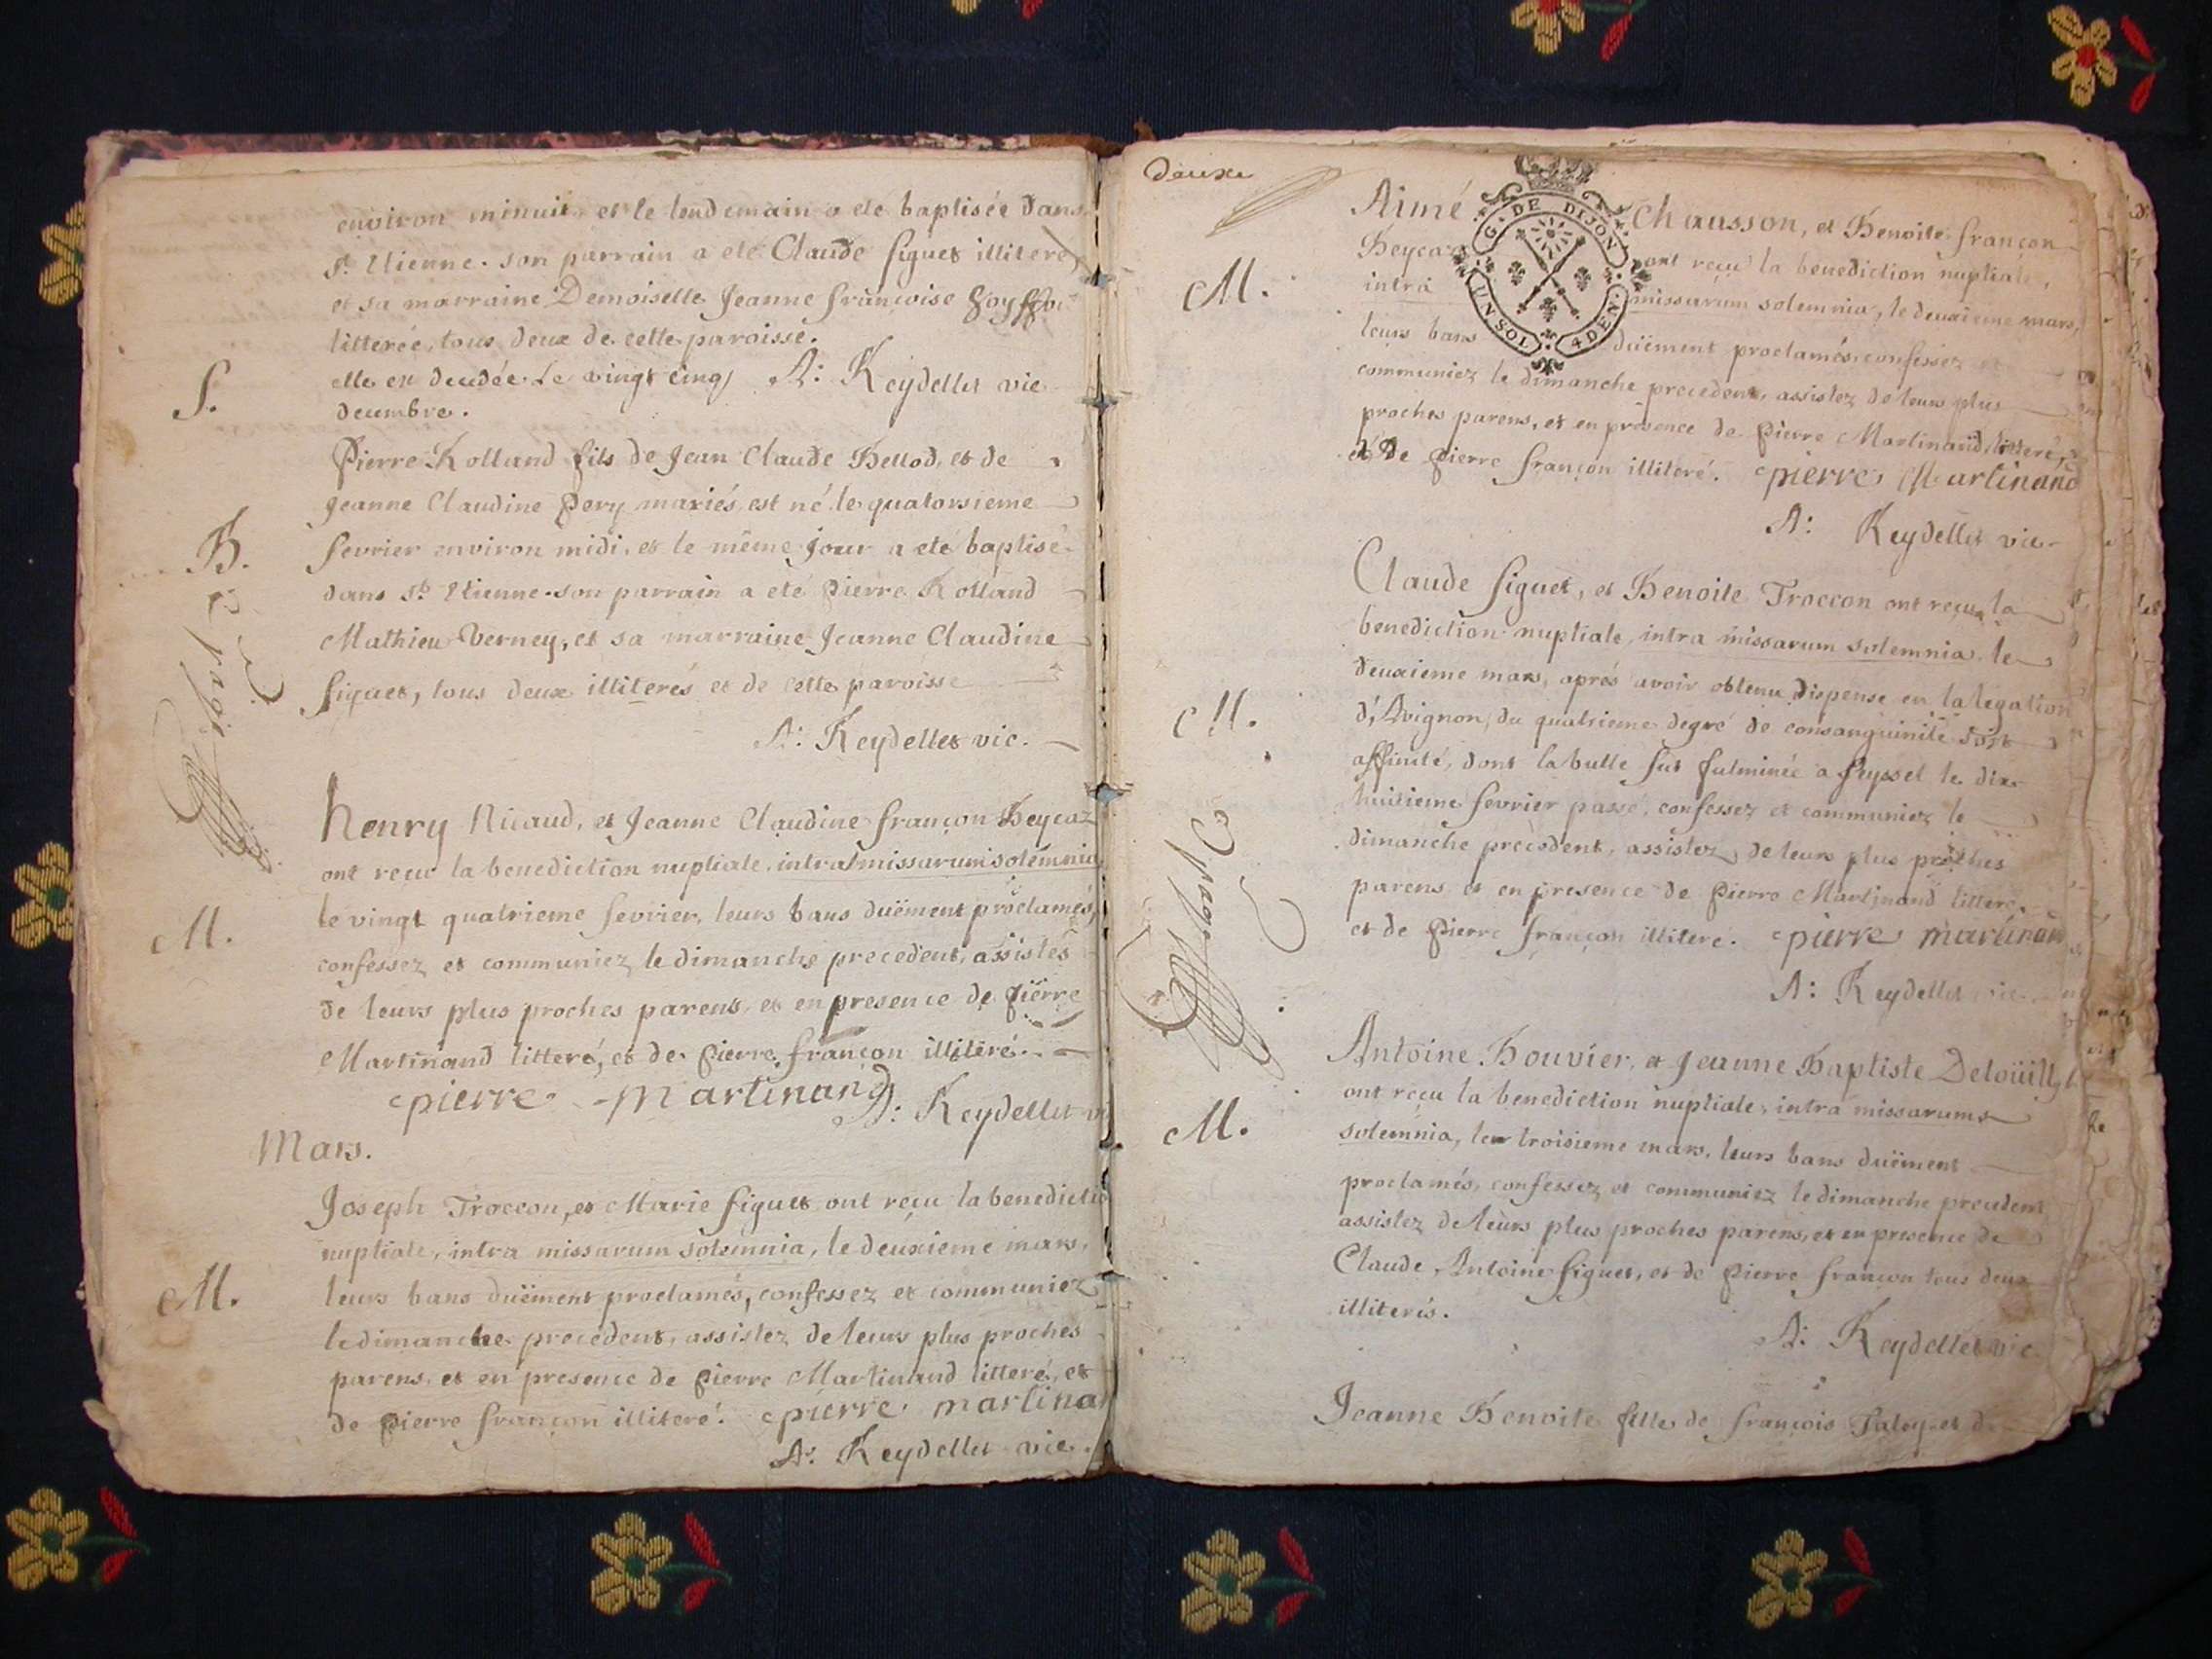 environ minuit, et le lendemain a eté baptisée dans
St. Etienne. son parrain a eté Claude figuet illiteré,
et sa marraine Demoiselle Jeanne françoise
litterée, tous deux de cette paroisse.
S.
elle est decedée Le vingt cinq A: Keydellet vic
decembre.
Pierre Rolland fils de Jean Claude Bellod, et de
Jeanne Claudine Pery mariés, est né le quatorsieme
B.
fevrier environ midi, et le même jour a eté baptisé
dans St. Etienne. son parrain a eté pierre Rolland
Mathieu Verney, et sa marraine Jeanne Claudine
figuet, tous deux illiterés et de cette paroisse
A: Keydellet vic.
2 page
henry Nicaud, et Jeanne Claudine françon Beycaz
ont reçu la benediction nuptiale, intra missarum solemnia
M.
le vingt quatrieme fevrier, leurs bans duëment proclamés,
confessez et communiez le dimanche precedent, assistés
de leurs plus proches parens, et en presence de pierre
Martinand litteré, et de pierre françon illiteré.
pierre martinand
A: Keydellet vi
Mars.
Joseph Troccon, et Marie figuet ont reçu la benedictio
nuptiale, intra missarum solemnia, le deuxieme mars,
M.
leurs bans duëment proclamés, confessez et communiez
le dimanche precedent, assistez de leurs plus proches
parens, et en presence de pierre Martinand litteré, et
de pierre françon illiteré. pierre martinan
A: Keydellet vic.
deuxe
G. DE DIJON
UN SOL 4 DEN.
Aimé Chausson, et Benoite françon
Beycaz ont reçu la benediction nuptiale,
M.
intra missarum solemnia, le deuxieme mars,
leurs bans duëment proclamés, confessez et
communiez le dimanche precedent, assistez de leurs plus
proches parens, et en presence de pierre Martinand litteré,
et de pierre françon illiteré. pierre Martinand
A: Keydellet vic
Claude figuet, et Benoite Troccon ont reçu la
benediction nuptiale, intra missarum solemnia le
deuxieme mars, aprés avoir obtenu dispense en la legation
M.
d'Avignon, du quatrieme degré de consanguinité
affinité, dont la bulle fut fulminée a seyssel le dix
huitieme fevrier passé, confessez et communiez le
dimanche precedent, assistez de leurs plus proches
parens et en presence de pierre Martinand litteré,
et de pierre françon illiteré. pierre martinan
A: Keydellet vic
3 page
Antoine Bouvier, et Jeanne Baptiste
ont reçu la benediction nuptiale, intra missarum
M.
solemnia, le troisieme mars, leurs bans duëment
proclamés, confessez et communiez le dimanche precedent
assistez de leurs plus proches parens, et en presence de
Claude Antoine figuet, et de pierre françon tous deux
illiterés.
A: Keydellet vic.
Jeanne Benoite fille de françois et de